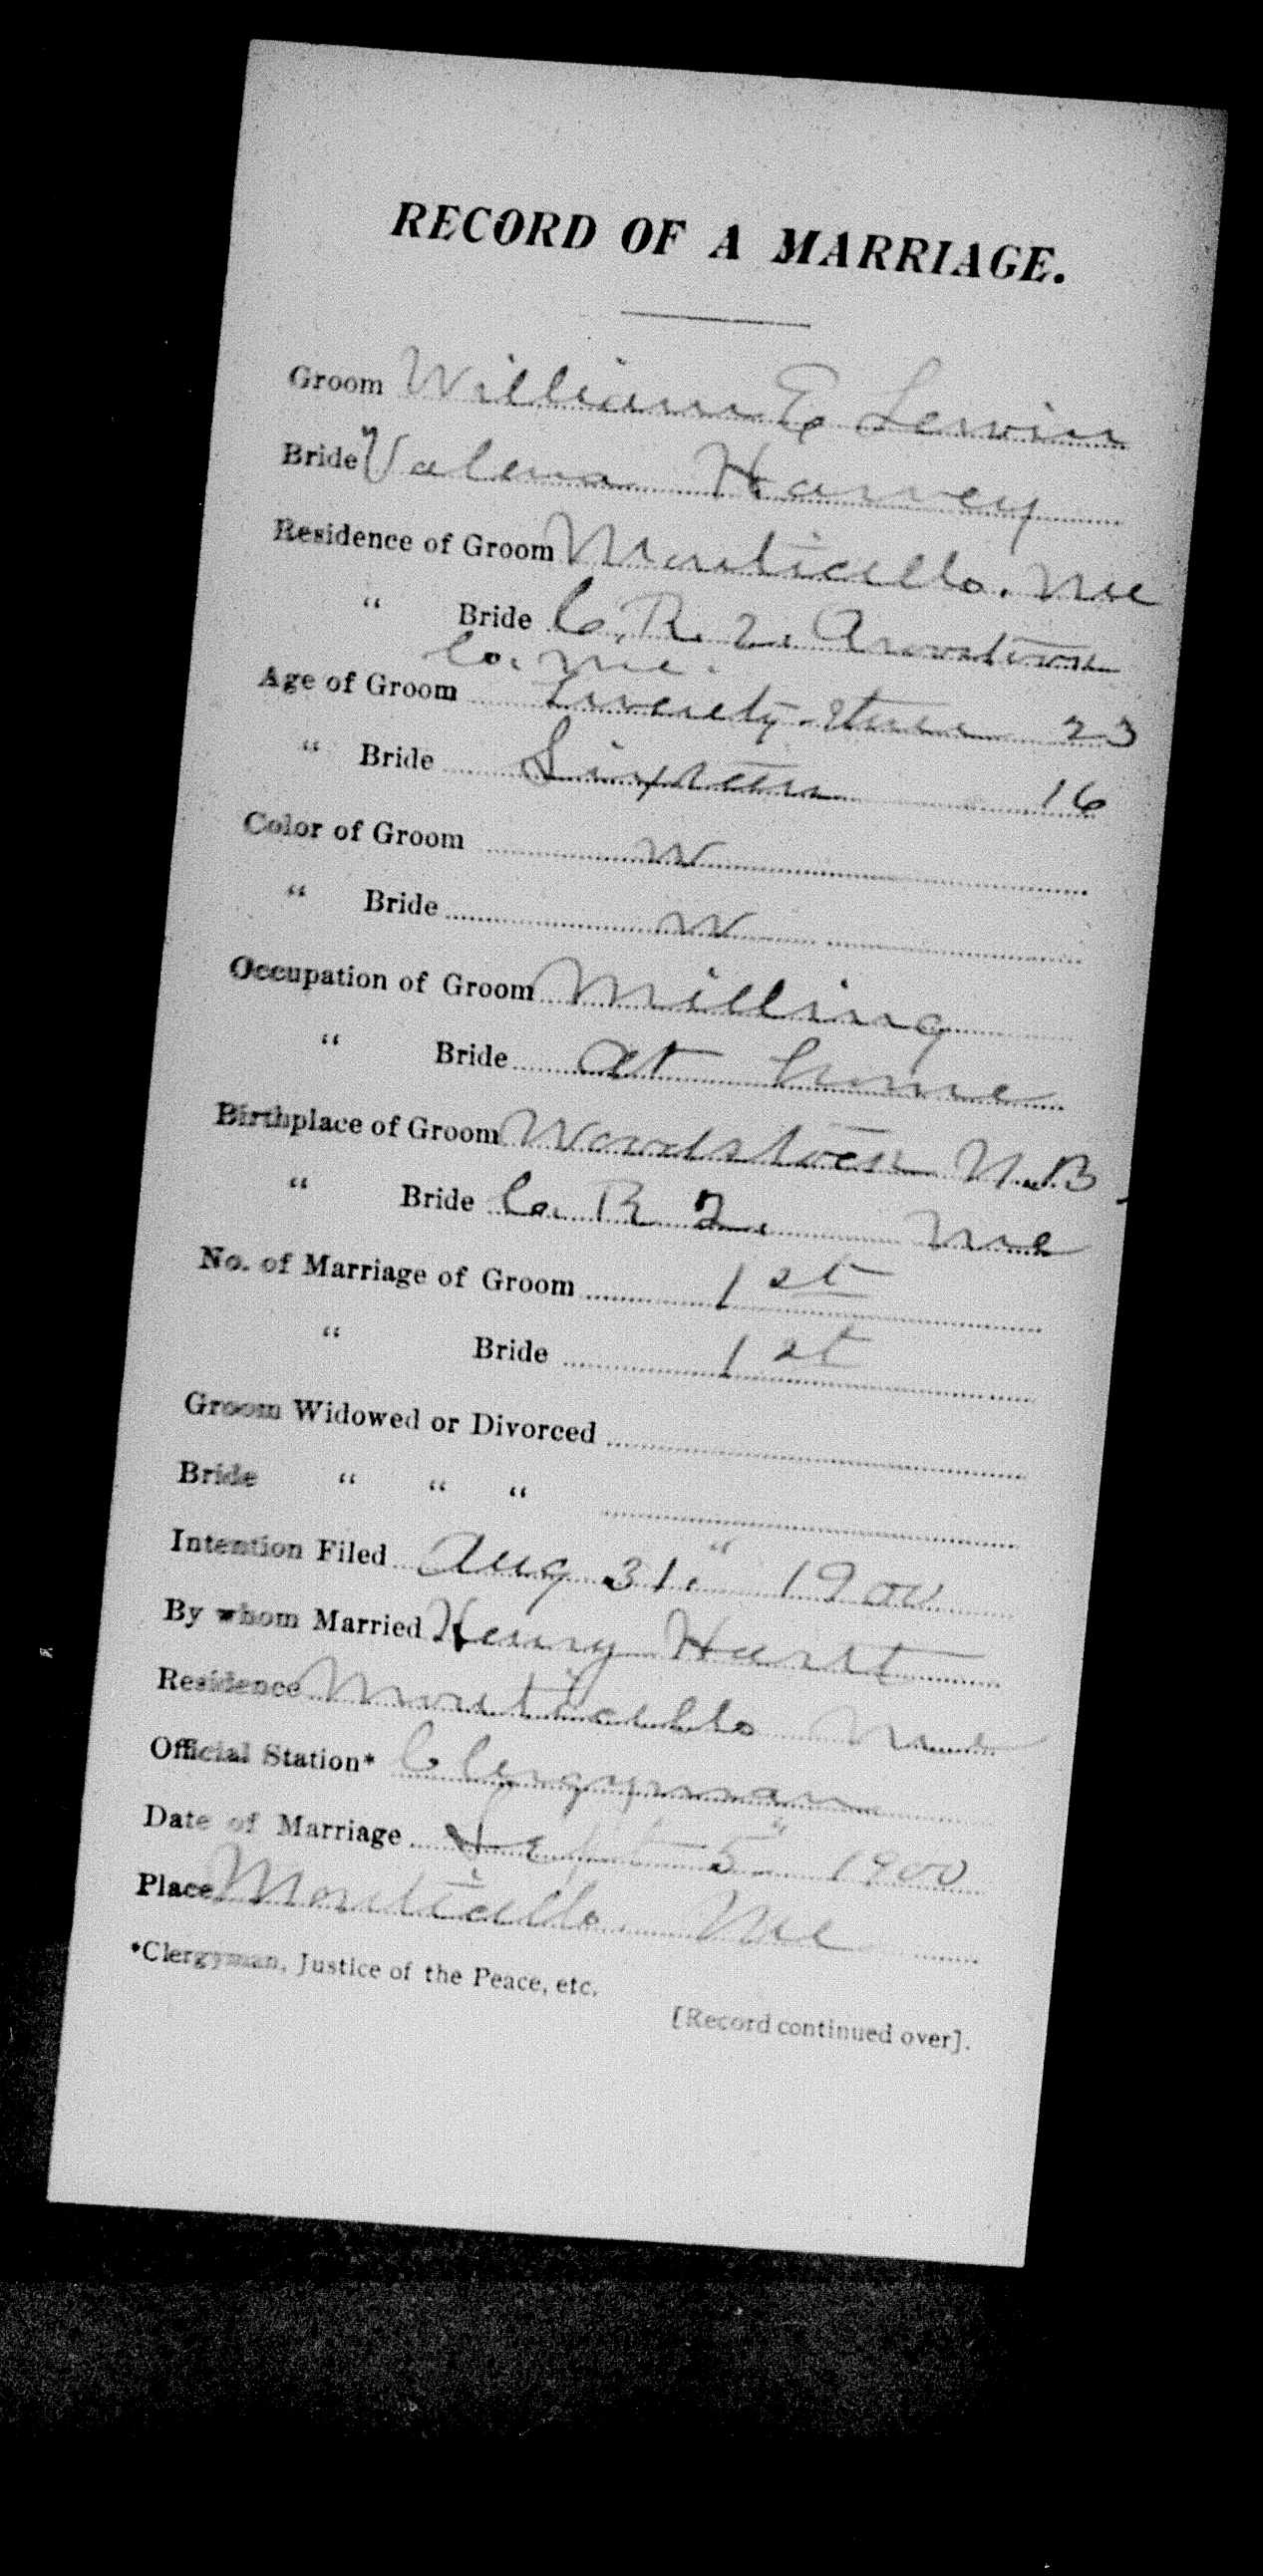 RECORD OF A MARRIAGE.
Groom William E Lewin
Bride Valena Harvey
Residence of Groom Monticello. Me
" Bride C. R. 2. Aroostook
Co. Me.
Age of Groom Twenty-three 23
" Bride Sixteen 16
Color of Groom W
" Bride W
Occupation of Groom Milling
" Bride at home
Birthplace of Groom Woodstock N.B.
" Bride C. R 2. Me
No. of Marriage of Groom 1st
" Bride 1st
Groom Widowed or Divorced
Bride " " "
Intention Filed Aug 31." 1900
By whom Married Henry Hartt
Residence Monticello Me
Official Station* Clergyman
Date of Marriage Sept 5" 1900
Place Monticello. Me
*Clergyman, Justice of the Peace, etc.
[Record continued over].